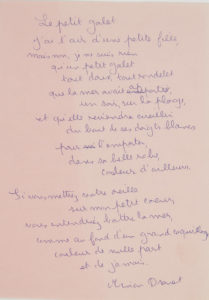 Le petit galet
J'ai l'air d'une petite fille
mais non, je ne suis rien
qu'un petit galet
tout doux, tout rondelet
que la mer avait
un soir, sur la plage,
et qu'elle reviendra cueillir
du bout de ses doigts blancs
pour l'emporter
dans sa belle robe,
couleur d'ailleurs.
Si vous mettez votre oreille
sur mon petit cœur,
vous entendrez battre la mer,
comme au fond d'un grand coquillage
couleur de nulle part
et de jamais.